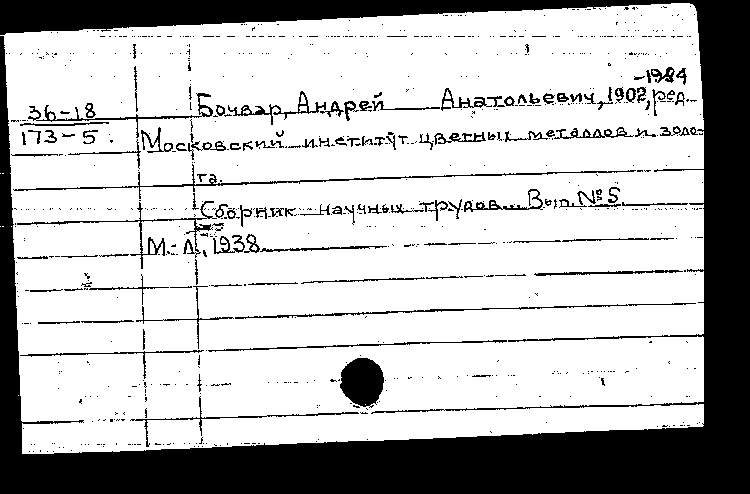 -1984
36-18
173-5.
Бочвар, Андрей Анатольевич, 1902, ред.
Московский институт цветных металлов и золо-
та.
Сборник научных трудов. Вып. №5.
М.-Л., 1938